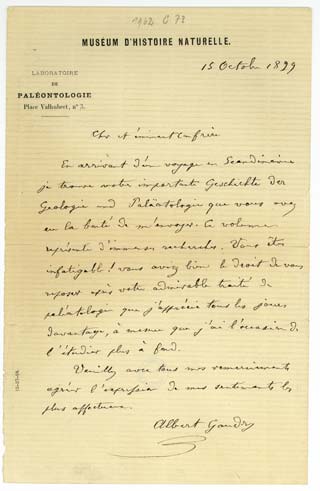 1962 C 77
MUSEUM D'HISTOIRE NATURELLE.
15 Octobre 1899
LABORATOIRE
DE
PALÉONTOLOGIE
Place Valhubert, n° 3.
Cher et éminent Confrère
En arrivant d'un voyage en Scandinavie
je trouve votre importante Geschichte der
Geologie und Paläontologie que vous avez
eu la bonté de m'envoyer. Ce volume
représente d'immenses recherches. Vous êtes
infatigable! vous aviez bien le droit de vous
reposer après votre admirable traité de
paléontologie que j'apprécie tous les jours
davantage, à mesure que j'ai l'occasion de
l'étudier plus à fond.
Veuillez avec tous mes remerciements
agréer l'expression de mes sentiments les
plus affectueux.
Albert Gaudry